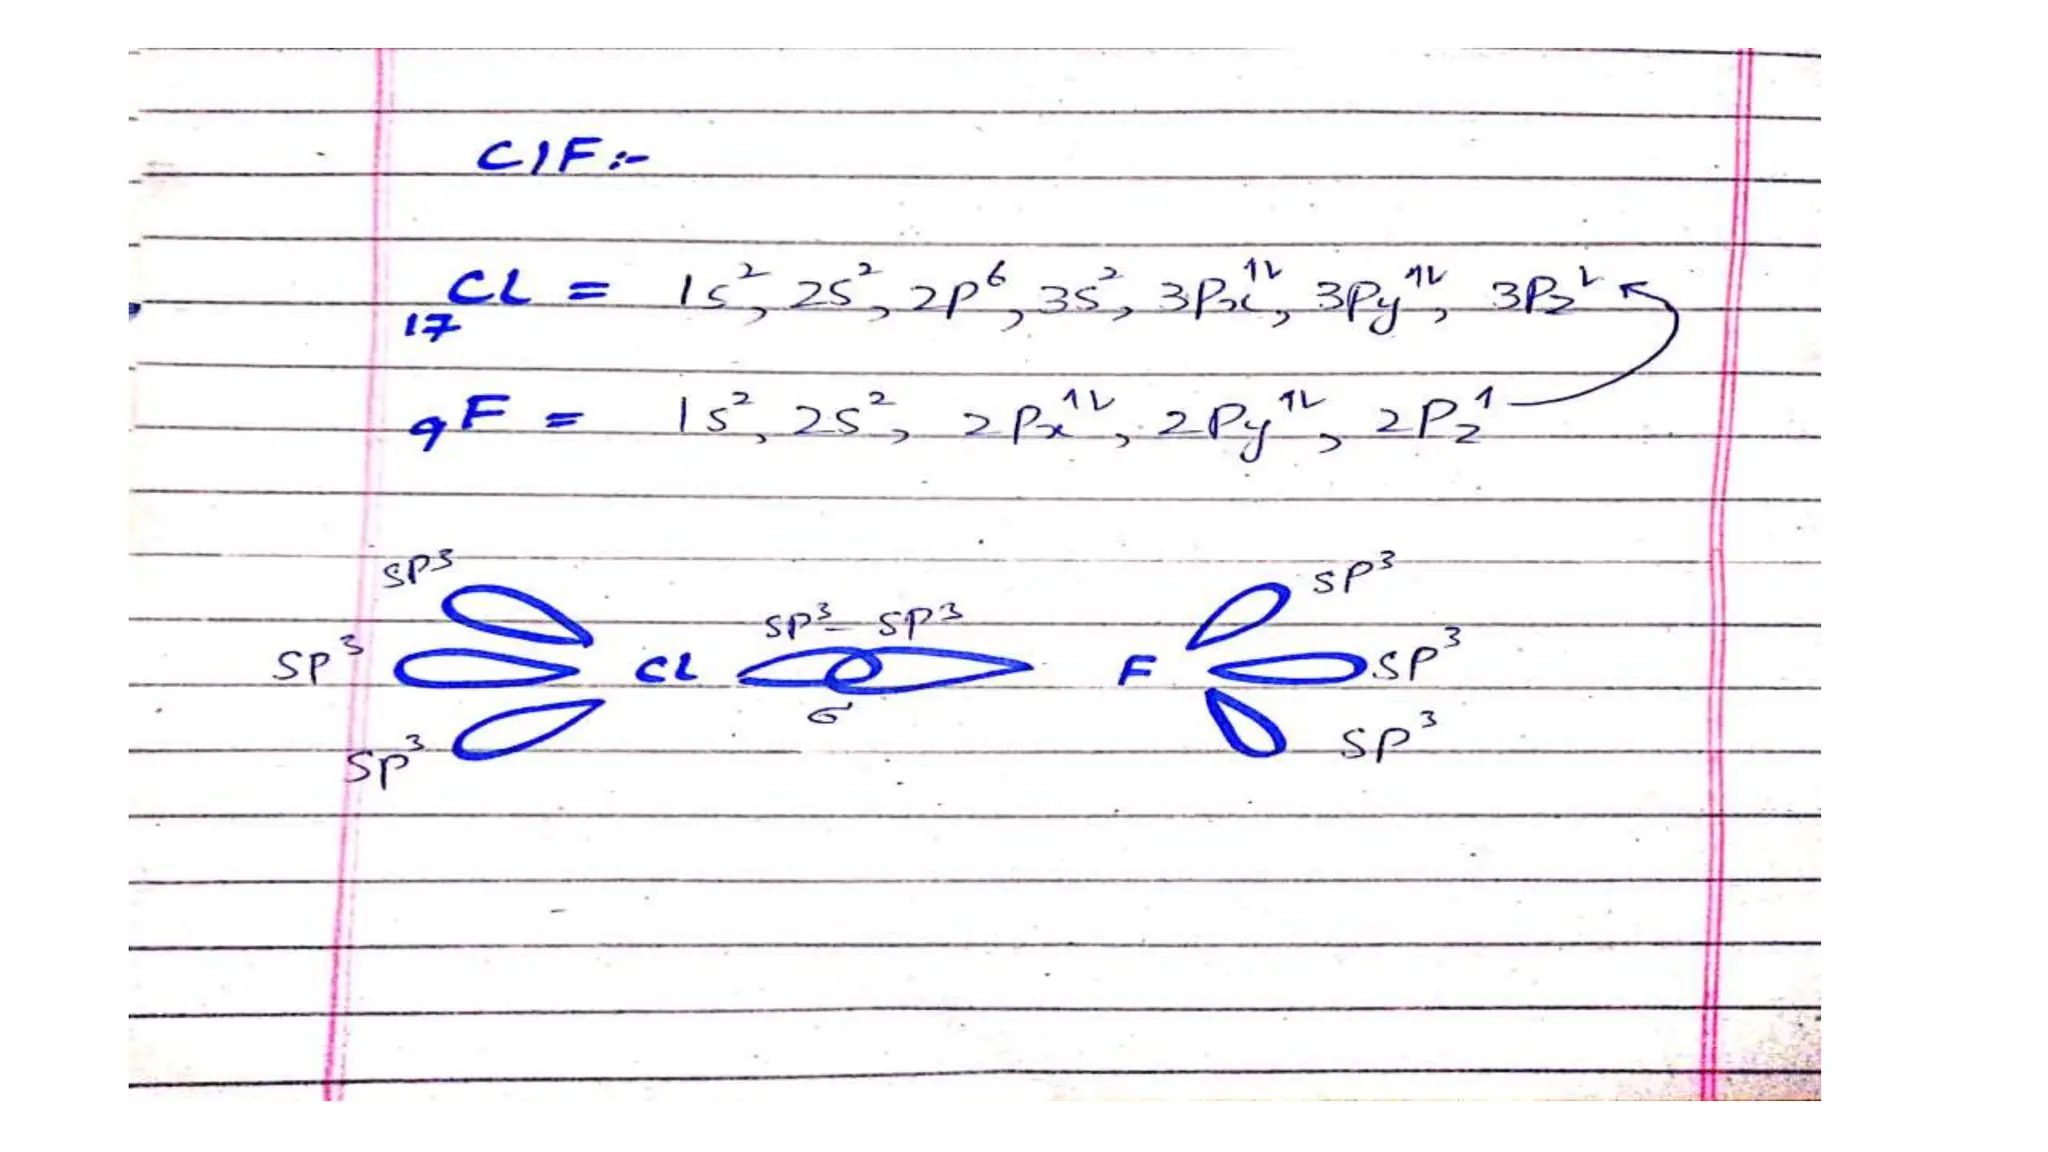 ClF:-
17Cl = 1s², 2s², 2p⁶, 3s², 3Px↿⇂, 3Py↿⇂, 3Pz⇂
9F = 1s², 2s², 2Px↿⇂, 2Py↿⇂, 2Pz↿
SP³ SP³
SP³ - SP³
SP³ Cl F SP³
σ
SP³ SP³